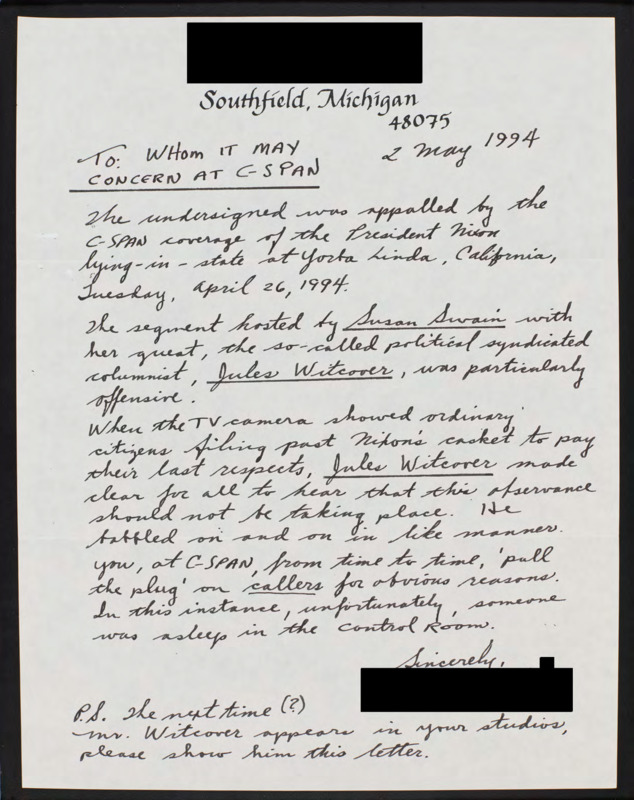 Southfield, Michigan
48075
2 May 1994
To: Whom it may
concern at C-SPAN
The undersigned was appalled by the
C-SPAN coverage of the President Nixon
lying-in-state at Yorba Linda, California,
Tuesday, April 26, 1994.
The segment hosted by Susan Swain with
her guest, the so-called political syndicated
columnist, Jules Witcover, was particularly
offensive.
When the TV camera showed ordinary
citizens filing past Nixon's casket to pay
their last respects, Jules Witcover made
clear for all to hear that this observance
should not be taking place. He
babbled on and on in like manner.
You, at C-SPAN, from time to time, 'pull
the plug' on callers for obvious reasons.
In this instance, unfortunately, someone
was asleep in the control room.
Sincerely,
P.S. The next time (?)
Mr. Witcover appears in your studios,
please show him this letter.